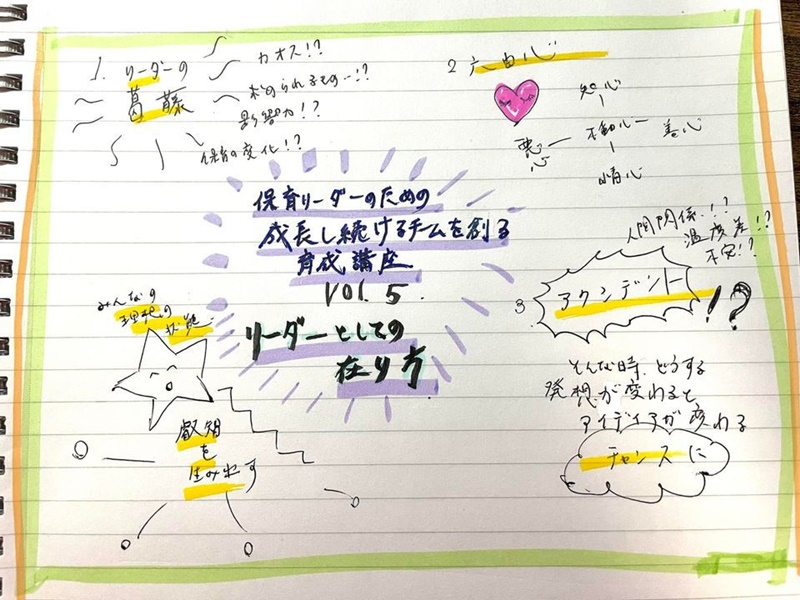 1. リーダーの
葛藤
カオス!?
求められるもの…!?
影響力!?
保育の変化!?
2 六由心
知心
悪心
不動心
善心
情心
保育リーダーのための
成長し続けるチームを創る
育成講座
VOl. 5
リーダーとしての
在り方
人間関係!!?
温度差!?
不安!?
3
アクシデント
!?
みんなの
理想の
状態
叡智
を
生み出す
そんな時、どうする
発想が変わると
アイディアが変わる
チャンスに